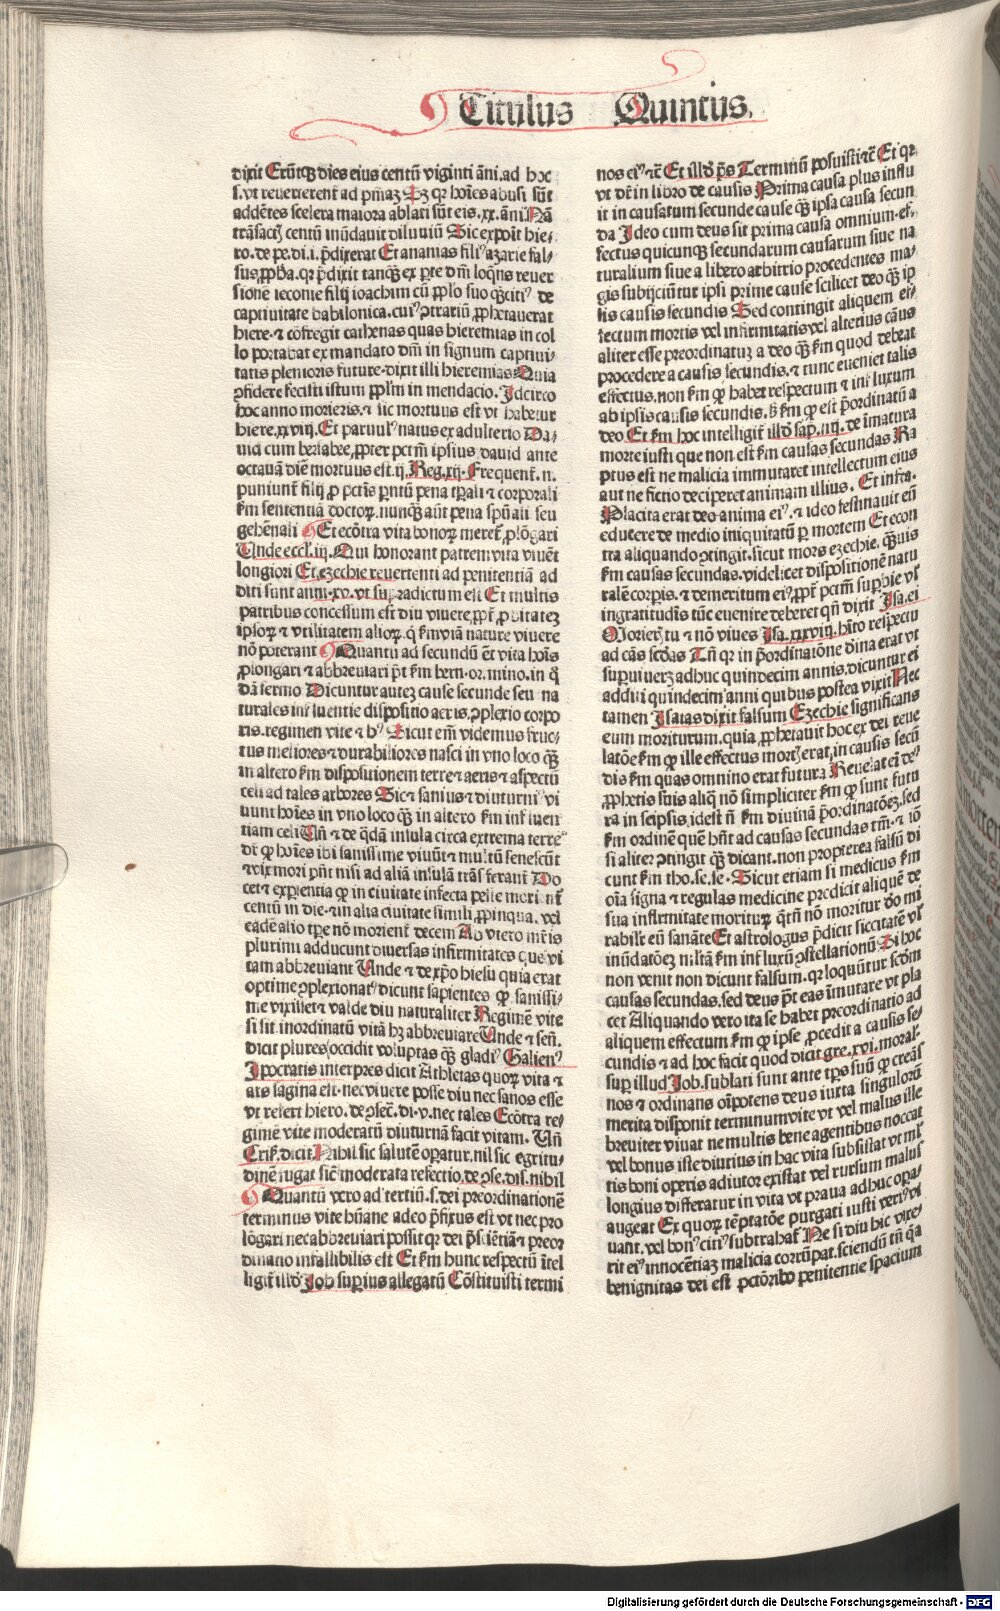 Titulus Quintus.
dixit Erũtqꝫ dies eius centũ viginti ãni. ad hoc
s. vt reuerterent ad pñiaꝫ Sꝫ qꝛ hoĩes abusi sũt
addẽtes scelera maiora ablati sũt eis. xx. ãni. Nã
trãsactꝭ centũ inũdauit diluuiũ Sic exponit hie⸗
ro. de pe. di. i. p̃dixerat Et ananias filiꝰ azarie fal⸗
sus ꝓpha. qꝛ p̃dixit tanqꝫ ex pte dñi loq̃ns reuer
sionẽ ieconie filij ioachim cũ pplo suo qꝫcitiꝰ de
captiuitate babilonica. cuiꝰ ꝯtrariũ ꝓphetauerat
hiere. ⁊ cõfregit cathenas quas hieremias in col
lo portabat ex mandato dñi in signum captiui⸗
tatis plenioris future. dixit illi hieremias Quia
ꝯfidere fecisti istum pplm in mendacio. Idcirco
hoc anno morieris. ⁊ sic mortuus est vt habetur
hiere. xxviij. Et paruulꝰ natus ex adulterio Da⸗
uid cum bersabee, ꝓpter pctm̃ ipsius dauid ante
octauã diẽ mortuus est. ij. Reg. xij. Frequent̃. n.
puniunt̃ filij ꝓ pctĩs parẽtũ pena tp̃ali ⁊ corporali
fm sententiã doctoꝝ. nunqꝫ aũt pena spũali seu
gehẽnali Et ecõtra vita bonoꝝ meret̃ ꝓlõgari
Vnde eccl. iij. Qui honorant patrem vita viuẽt
longiori Et. ezechie reuertenti ad penitentiã ad
diti sunt anni. xv. vt supradictum est Et multis
patribus concessum est diu viuere ꝓpt̃ ꝓbitateꝫ
ipsoꝝ ⁊ vtilitatem alioꝝ. q̃ fm viã nature viuere
nõ poterant Quantũ ad secundũ ẽt vita hoĩs
ꝓlongari ⁊ abbreuiari põt fm bern. or. mino. in q̃
dã sermo Dicuntur auteꝫ cause secunde seu na
turales influentie dispositio aeris. ꝯplexio corpo
ris. regimen vite ⁊ hꝰ Sicut em̃ videmus fruc⸗
tus meliores ⁊ durabiliores nasci in vno loco qꝫ
in altero fm dispositionem terre ⁊ aeris ⁊ aspectũ
celi ad tales arbores Sic ⁊ sanius ⁊ diuturniꝰ vi
uunt hoĩes in vno loco qꝫ in altero fm influen
tiam celi Vñ ⁊ de q̃dã insula circa extrema terre
dr̃ ꝙ hoĩes ibi sanissime viuũt ⁊ multũ senescũt
⁊ vix mori pñt nisi ad aliã insulã trãsferant̃ Do
cet ⁊ experientia ꝙ in ciuitate infecta peste moriunt̃
centũ in die. ⁊ in alia ciuitate simili ꝓpinqua. vel
eadẽ alio tpe nõ morient̃ decem Ab vtero mr̃is
plurimi adducunt diuersas infirmitates que vi
tam abbreuiant Vnde ⁊ de xp̃o hiesu quia erat
optime ꝯplexionatꝰ dicunt sapientes ꝙ sanissi⸗
me vixisset ⁊ valde diu naturaliter Regimẽ vite
si sit inordinatũ vitã hꝫ abbreuiare Vnde ⁊ sen̄.
dicit plures occidit voluptas qꝫ gladiꝰ Galienꝰ
Ipocratis interpres dicit Athletas quoꝝ vita ⁊
ars sagina est. nec viuere posse diu nec sanos esse
vt refert hiero. de ꝯsec̃. di. v. nec tales Ecõtra re⸗
gimẽ vite moderatũ diuturnã facit vitam. Vñ
Crisͦ. dicit. Nihil sic salutẽ oꝑatur. nil sic egritu⸗
dinẽ fugat sic̃ moderata refectio. de ꝯse. dis. nihil
Quantũ vero ad tertiũ. s. dei preordinationẽ
terminus vite hũane adeo p̃fixus est vt nec pro
lõgari nec abbreuiari possit qꝛ dei p̃sciẽtia ⁊ preor
dinatio infallibilis est Et fm hunc respectũ ĩtel
ligit̃ illð Job superius allegatũ Cõstituisti termi
nos eiꝰ ⁊c̃ Et illð ps̃ Terminũ posuisti ⁊c̃ Et qꝛ
vt dr̃ in libro de causis Prima causa plus influ
it in causatum secunde cause qꝫ ipsa causa secun
da Ideo cum deus sit prima causa omnium. ef⸗
fectus quicunqꝫ secundarum causarum siue na
turalium siue a libero arbitrio procedentes ma⸗
gis subijciũtur ipsi prime cause scilicet deo qꝫ ip
sis causis secundis Sed contingit aliquem ef⸗
fectum mortis vel infirmitatis vel alterius cãus
aliter esse preordinatuꝫ a deo qꝫ fm quod debeat
procedere a causis secundis. ⁊ tunc eueniet talis
effectus, non fm ꝙ habet respectum ⁊ influxum
ab ipsis causis secundis. sꝫ fm ꝙ est p̃ordinatũ a
deo Et fm hoc intelligit̃ illð sap. iiij. de ĩmatura
morte iusti que non est fm causas secundas Ra
ptus est ne malicia immutaret intellectum eius
aut ne fictio deciperet animam illius. Et infra.
Placita erat deo anima eiꝰ. ⁊ ideo festinauit eũ
educere de medio iniquitatũ per mortem Et econ
tra aliquando ꝯtingit. sicut mors ezechie. qꝫuis
fm causas secundas. videlicet dispositionẽ natu
ralẽ corpis. ⁊ demeritum eiꝰ ꝓpt̃ pctm̃ supbie vl
ingratitudis tũc euenire deberet qñ dixit Isa. ei
Morieris tu ⁊ nõ viues Isa. xxxviij. hito respectu
ad cãs scðas Tñ qꝛ in p̃ordinatiõne diuina erat vt
supuiueret adhuc quindecim annis. dicuntur ei
additi quindecim anni quibus postea vixit Nec
tamen Isaias dixit falsum Ezechie significans
eum moriturum. quia ꝓphetauit hoc ex dei reue
latõe fm ꝙ ille effectus mortꝭ erat, in causis secũ
dis fm quas omnino erat futura Reuelat em̃ deꝰ
ꝓphetis suis aliq̃ nõ simpliciter fm ꝙ sunt futu
ra in seipsis, idest nõ fm diuinã p̃ordinatõeꝫ, sed
fm ordinẽ quẽ hñt ad causas secundas tm̃. ⁊ iõ
si aliter ꝯtingit qꝫ dicant. non propterea falsũ di
cunt fm tho. se. se. Sicut etiam si medicus fm
oĩa signa ⁊ regulas medicine predicit aliquẽ de
sua infirmitate morituꝝ. q̃tñ nõ moritur dño mi
rabilit̃ eũ sanãte Et astrologus p̃dicit siccitatẽ vl
inũdatõeꝫ multã fm influxũ ꝯstellationũ Si hoc
non venit non dicunt falsum. qꝛ loquũtur scðm
causas secundas. sed deus põt eas ĩmutare vt pla
cet Aliquando vero ita se habet preordinatio ad
aliquem effectum fm ꝙ ipse ꝓcedit a causis se⸗
cundis ⁊ ad hoc facit quod dicit gre. xvi. moral.
sup illud Job. sublati sunt ante tp̃s suũ ꝙ creãs
nos ⁊ ordinans oĩpotens deus iuxta singulorũ
merita disponit terminum vite vt vel malus ille
breuiter viuat ne multis bene agentibus noccat
vel bonus iste diutius in hac vita subsistat vt ml
tis boni operis adiutor existat vel rursum malus
longius differatur in vita vt praua adhuc opa⸗
augeat Ex quoꝝ tẽptatõe purgati iusti veriꝰ vi
uant. vel bonꝰ citiꝰ subtrahat̃ Ne si diu hic vixe⸗
rit eiꝰ innocẽtiaꝫ malicia corrũpat. sciendũ tñ q̃a
benignitas dei est pctõribꝰ penitentie spacium
Digitalisierung gefördert durch die Deutsche Forschungsgemeinschaft - DFG